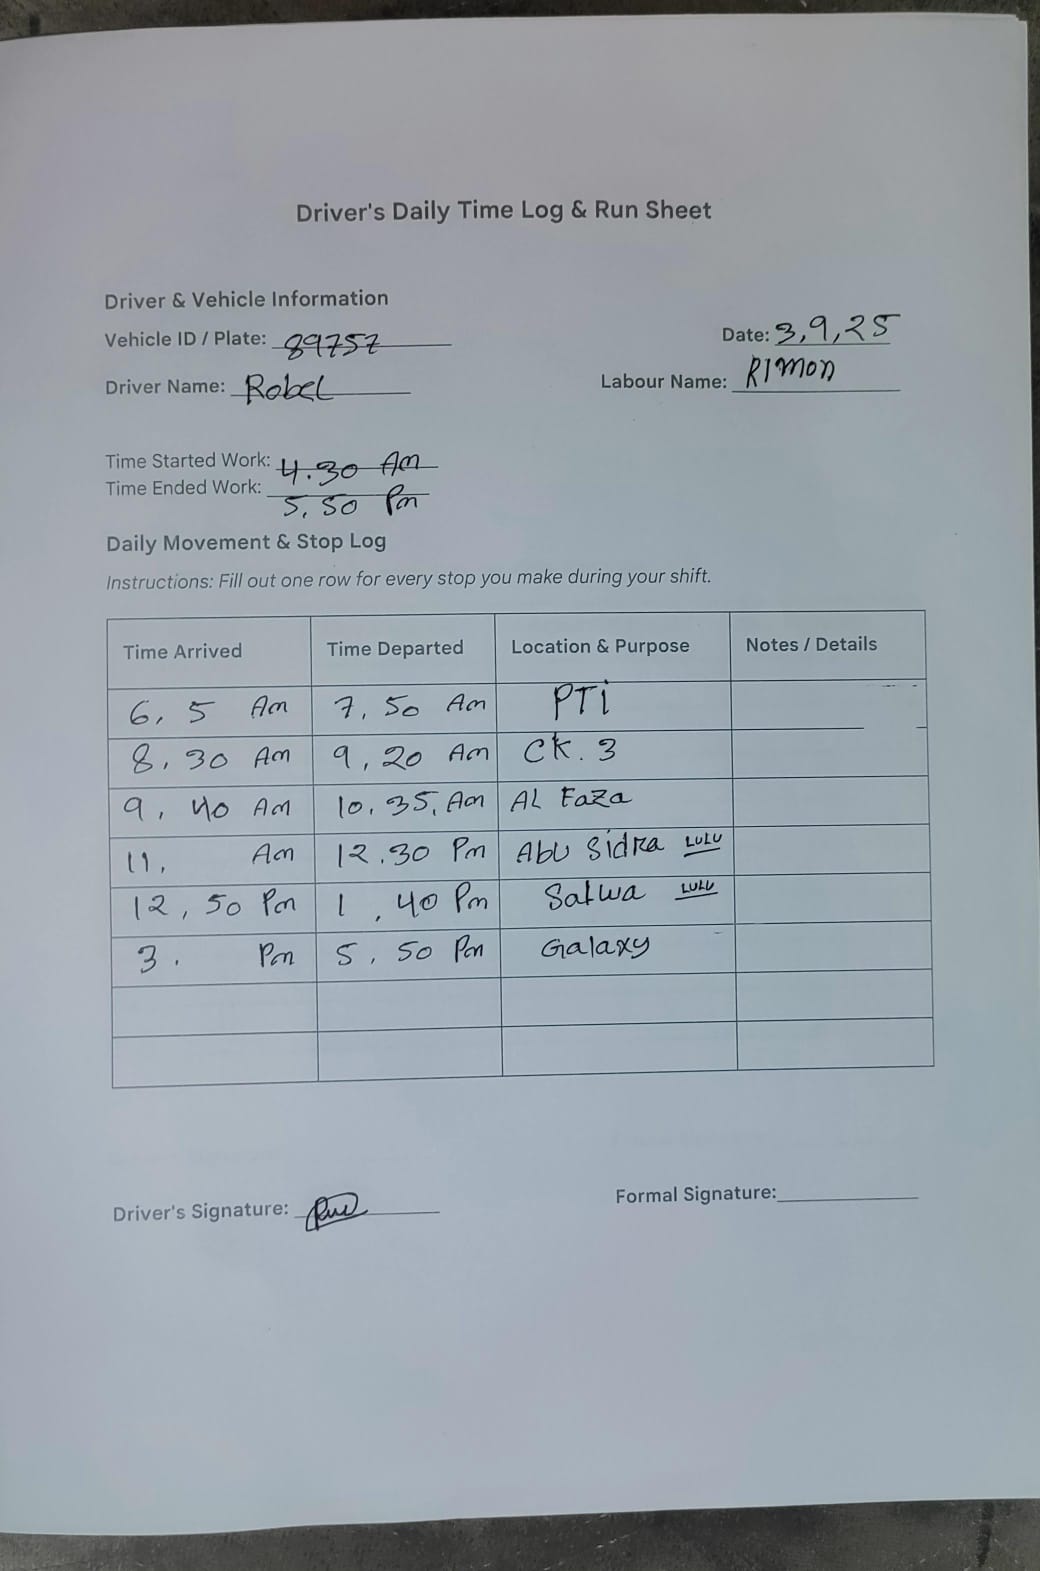 Driver's Daily Time Log & Run Sheet
Driver & Vehicle Information
Vehicle ID / Plate: 89757 Date: 3,9,25
Driver Name: Robel Labour Name: RIMON
Time Started Work: 4.30 Am
Time Ended Work: 5,50 Pm
Daily Movement & Stop Log
Instructions: Fill out one row for every stop you make during your shift.
Time Arrived Time Departed Location & Purpose Notes / Details
6, 5 Am 7, 50 Am PTi
8, 30 Am 9, 20 Am CK. 3
9, 40 Am 10, 35, Am AL Faza
11, Am 12.30 Pm Abu Sidra LULU
12, 50 Pm 1, 40 Pm Salwa LULU
3. Pm 5, 50 Pm Galaxy
Driver's Signature: Formal Signature: